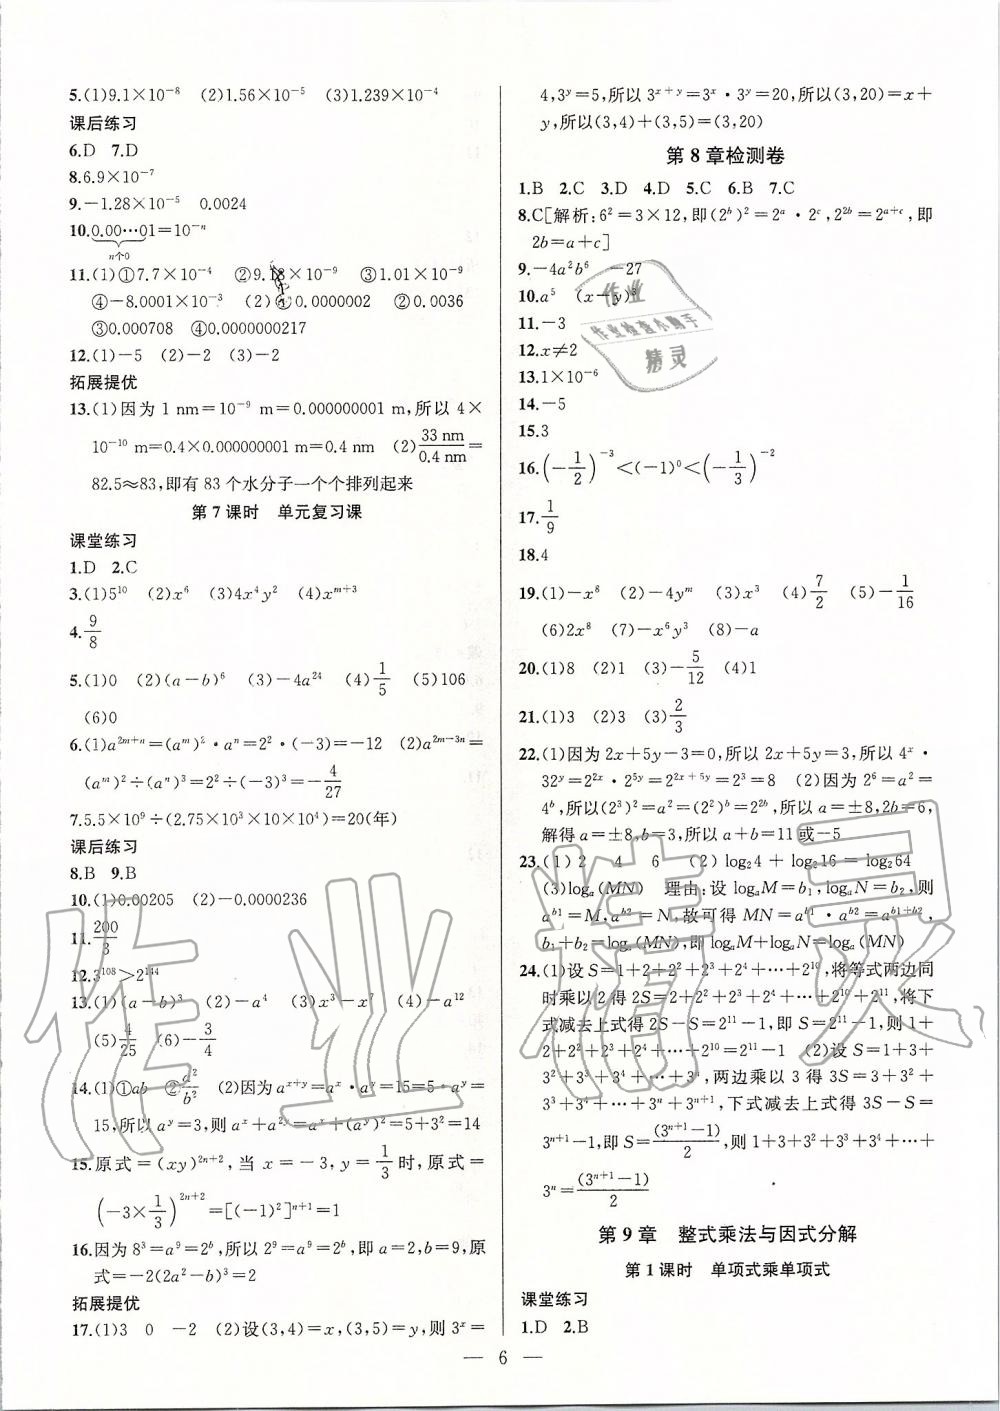 5.(1)9.1×10⁻⁸ (2)1.56×10⁻⁵ (3)1.239×10⁻⁴
课后练习
6.D 7.D
8.6.9×10⁻⁷
9.-1.28×10⁻⁵ 0.0024
10.0.00…01=10⁻ⁿ
n个0
11.(1)①7.7×10⁻⁴ ②9.18×10⁻⁹ ③1.01×10⁻⁹
④-8.0001×10⁻³ (2)①0.0000002 ②0.0036
③0.000708 ④0.0000000217
12.(1)-5 (2)-2 (3)-2
拓展提优
13.(1)因为 1 nm=10⁻⁹ m=0.000000001 m,所以 4×
10⁻¹⁰ m=0.4×0.000000001 m=0.4 nm (2)33 nm/0.4 nm=
82.5≈83,即有 83 个水分子一个个排列起来
第 7 课时 单元复习课
课堂练习
1.D 2.C
3.(1)5¹⁰ (2)x⁶ (3)4x⁴y² (4)xᵐ⁺³
4.9/8
5.(1)0 (2)(a-b)⁶ (3)-4a²⁴ (4)1/5 (5)106
(6)0
6.(1)a²ᵐ⁺ⁿ=(aᵐ)²·aⁿ=2²·(-3)=-12 (2)a²ᵐ⁻³ⁿ=
(aᵐ)²÷(aⁿ)³=2²÷(-3)³=-4/27
7.5.5×10⁹÷(2.75×10³×10×10⁴)=20(年)
课后练习
8.B 9.B
10.(1)0.00205 (2)-0.0000236
11.200/3
12.3¹⁰⁸>2¹⁴⁴
13.(1)(a-b)³ (2)-a⁴ (3)x³-x⁷ (4)-a¹²
(5)4/25 (6)-3/4
14.(1)①ab ②a²/b² (2)因为 aˣ⁺ʸ=aˣ·aʸ=15=5·aʸ=
15,所以 aʸ=3,则 aˣ+a²ʸ=aˣ+(aʸ)²=5+3²=14
15.原式=(xy)²ⁿ⁺²,当 x=-3,y=1/3 时,原式=
(-3×1/3)²ⁿ⁺²=[(-1)²]ⁿ⁺¹=1
16.因为 8³=a⁹=2ᵇ,所以 2⁹=a⁹=2ᵇ,即 a=2,b=9,原
式=-2(2a²-b)³=2
拓展提优
17.(1)3 0 -2 (2)设(3,4)=x,(3,5)=y,则 3ˣ=
4,3ʸ=5,所以 3ˣ⁺ʸ=3ˣ·3ʸ=20,所以(3,20)=x+
y,所以(3,4)+(3,5)=(3,20)
第 8 章检测卷
1.B 2.C 3.D 4.D 5.C 6.B 7.C
8.C[解析:6²=3×12,即(2ᵇ)²=2ᵃ·2ᶜ,2²ᵇ=2ᵃ⁺ᶜ,即
2b=a+c]
9.-4a²b⁶ -27
10.a⁵ (x-y)³
11.-3
12.x≠2
13.1×10⁻⁶
14.-5
15.3
16.(-1/2)⁻³<(-1)⁰<(-1/3)⁻²
17.1/9
18.4
19.(1)-x⁸ (2)-4yᵐ (3)x³ (4)7/2 (5)-1/16
(6)2x⁸ (7)-x⁶y³ (8)-a
20.(1)8 (2)1 (3)-5/12 (4)1
21.(1)3 (2)3 (3)2/3
22.(1)因为 2x+5y-3=0,所以 2x+5y=3,所以 4ˣ·
32ʸ=2²ˣ·2⁵ʸ=2²ˣ⁺⁵ʸ=2³=8 (2)因为 2⁶=a²=
4ᵇ,所以(2³)²=a²=(2²)ᵇ=2²ᵇ,所以 a=±8,2b=6,
解得 a=±8,b=3,所以 a+b=11或-5
23.(1)2 4 6 (2)log₂4+log₂16=log₂64
(3)logₐ(MN) 理由:设 logₐM=b₁,logₐN=b₂,则
aᵇ¹=M,aᵇ²=N,故可得 MN=aᵇ¹·aᵇ²=aᵇ¹⁺ᵇ²,
b₁+b₂=logₐ(MN),即 logₐM+logₐN=logₐ(MN)
24.(1)设 S=1+2+2²+2³+2⁴+…+2¹⁰,将等式两边同
时乘以 2 得 2S=2+2²+2³+2⁴+…+2¹⁰+2¹¹,将下
式减去上式得 2S-S=2¹¹-1,即 S=2¹¹-1,则 1+
2+2²+2³+2⁴+…+2¹⁰=2¹¹-1 (2)设 S=1+3+
3²+3³+3⁴+…+3ⁿ,两边乘以 3 得 3S=3+3²+
3³+3⁴+…+3ⁿ+3ⁿ⁺¹,下式减去上式得 3S-S=
3ⁿ⁺¹-1,即 S=(3ⁿ⁺¹-1)/2,则 1+3+3²+3³+3⁴+…+
3ⁿ=(3ⁿ⁺¹-1)/2
第 9 章 整式乘法与因式分解
第 1 课时 单项式乘单项式
课堂练习
1.D 2.B
— 6 —
作业
作业检查小助手
精灵
作业精灵